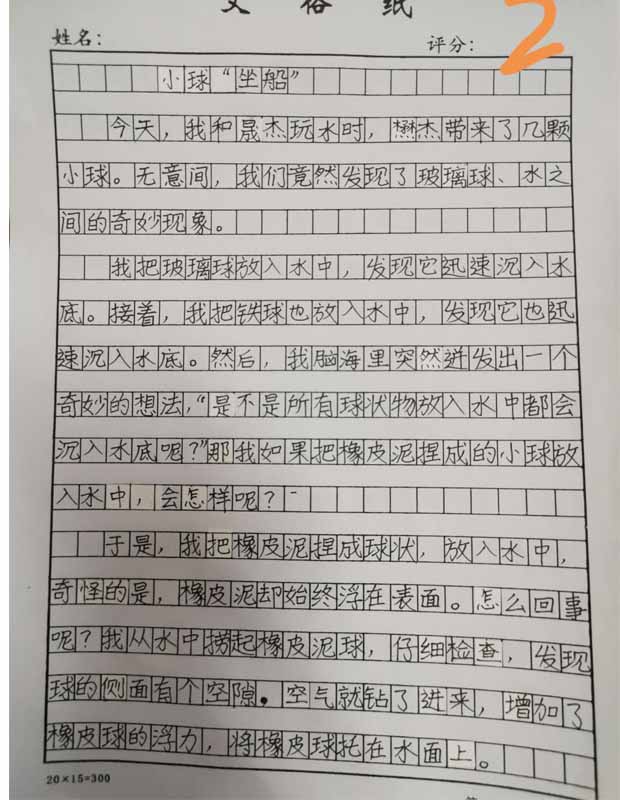 文 格 纸
2
姓名： 评分：
小球“坐船”
今天，我和晟杰玩水时，懋杰带来了几颗
小球。无意间，我们竟然发现了玻璃球、水之
间的奇妙现象。
我把玻璃球放入水中，发现它迅速沉入水
底。接着，我把铁球也放入水中，发现它也迅
速沉入水底。然后，我脑海里突然迸发出一个
奇妙的想法，“是不是所有球状物放入水中都会
沉入水底呢？”那我如果把橡皮泥捏成的小球放
入水中，会怎样呢？
于是，我把橡皮泥捏成球状，放入水中，
奇怪的是，橡皮泥却始终浮在表面。怎么回事
呢？我从水中捞起橡皮泥球，仔细检查，发现
球的侧面有个空隙。空气就钻了进来，增加了
橡皮球的浮力，将橡皮球托在水面上。
20×15=300